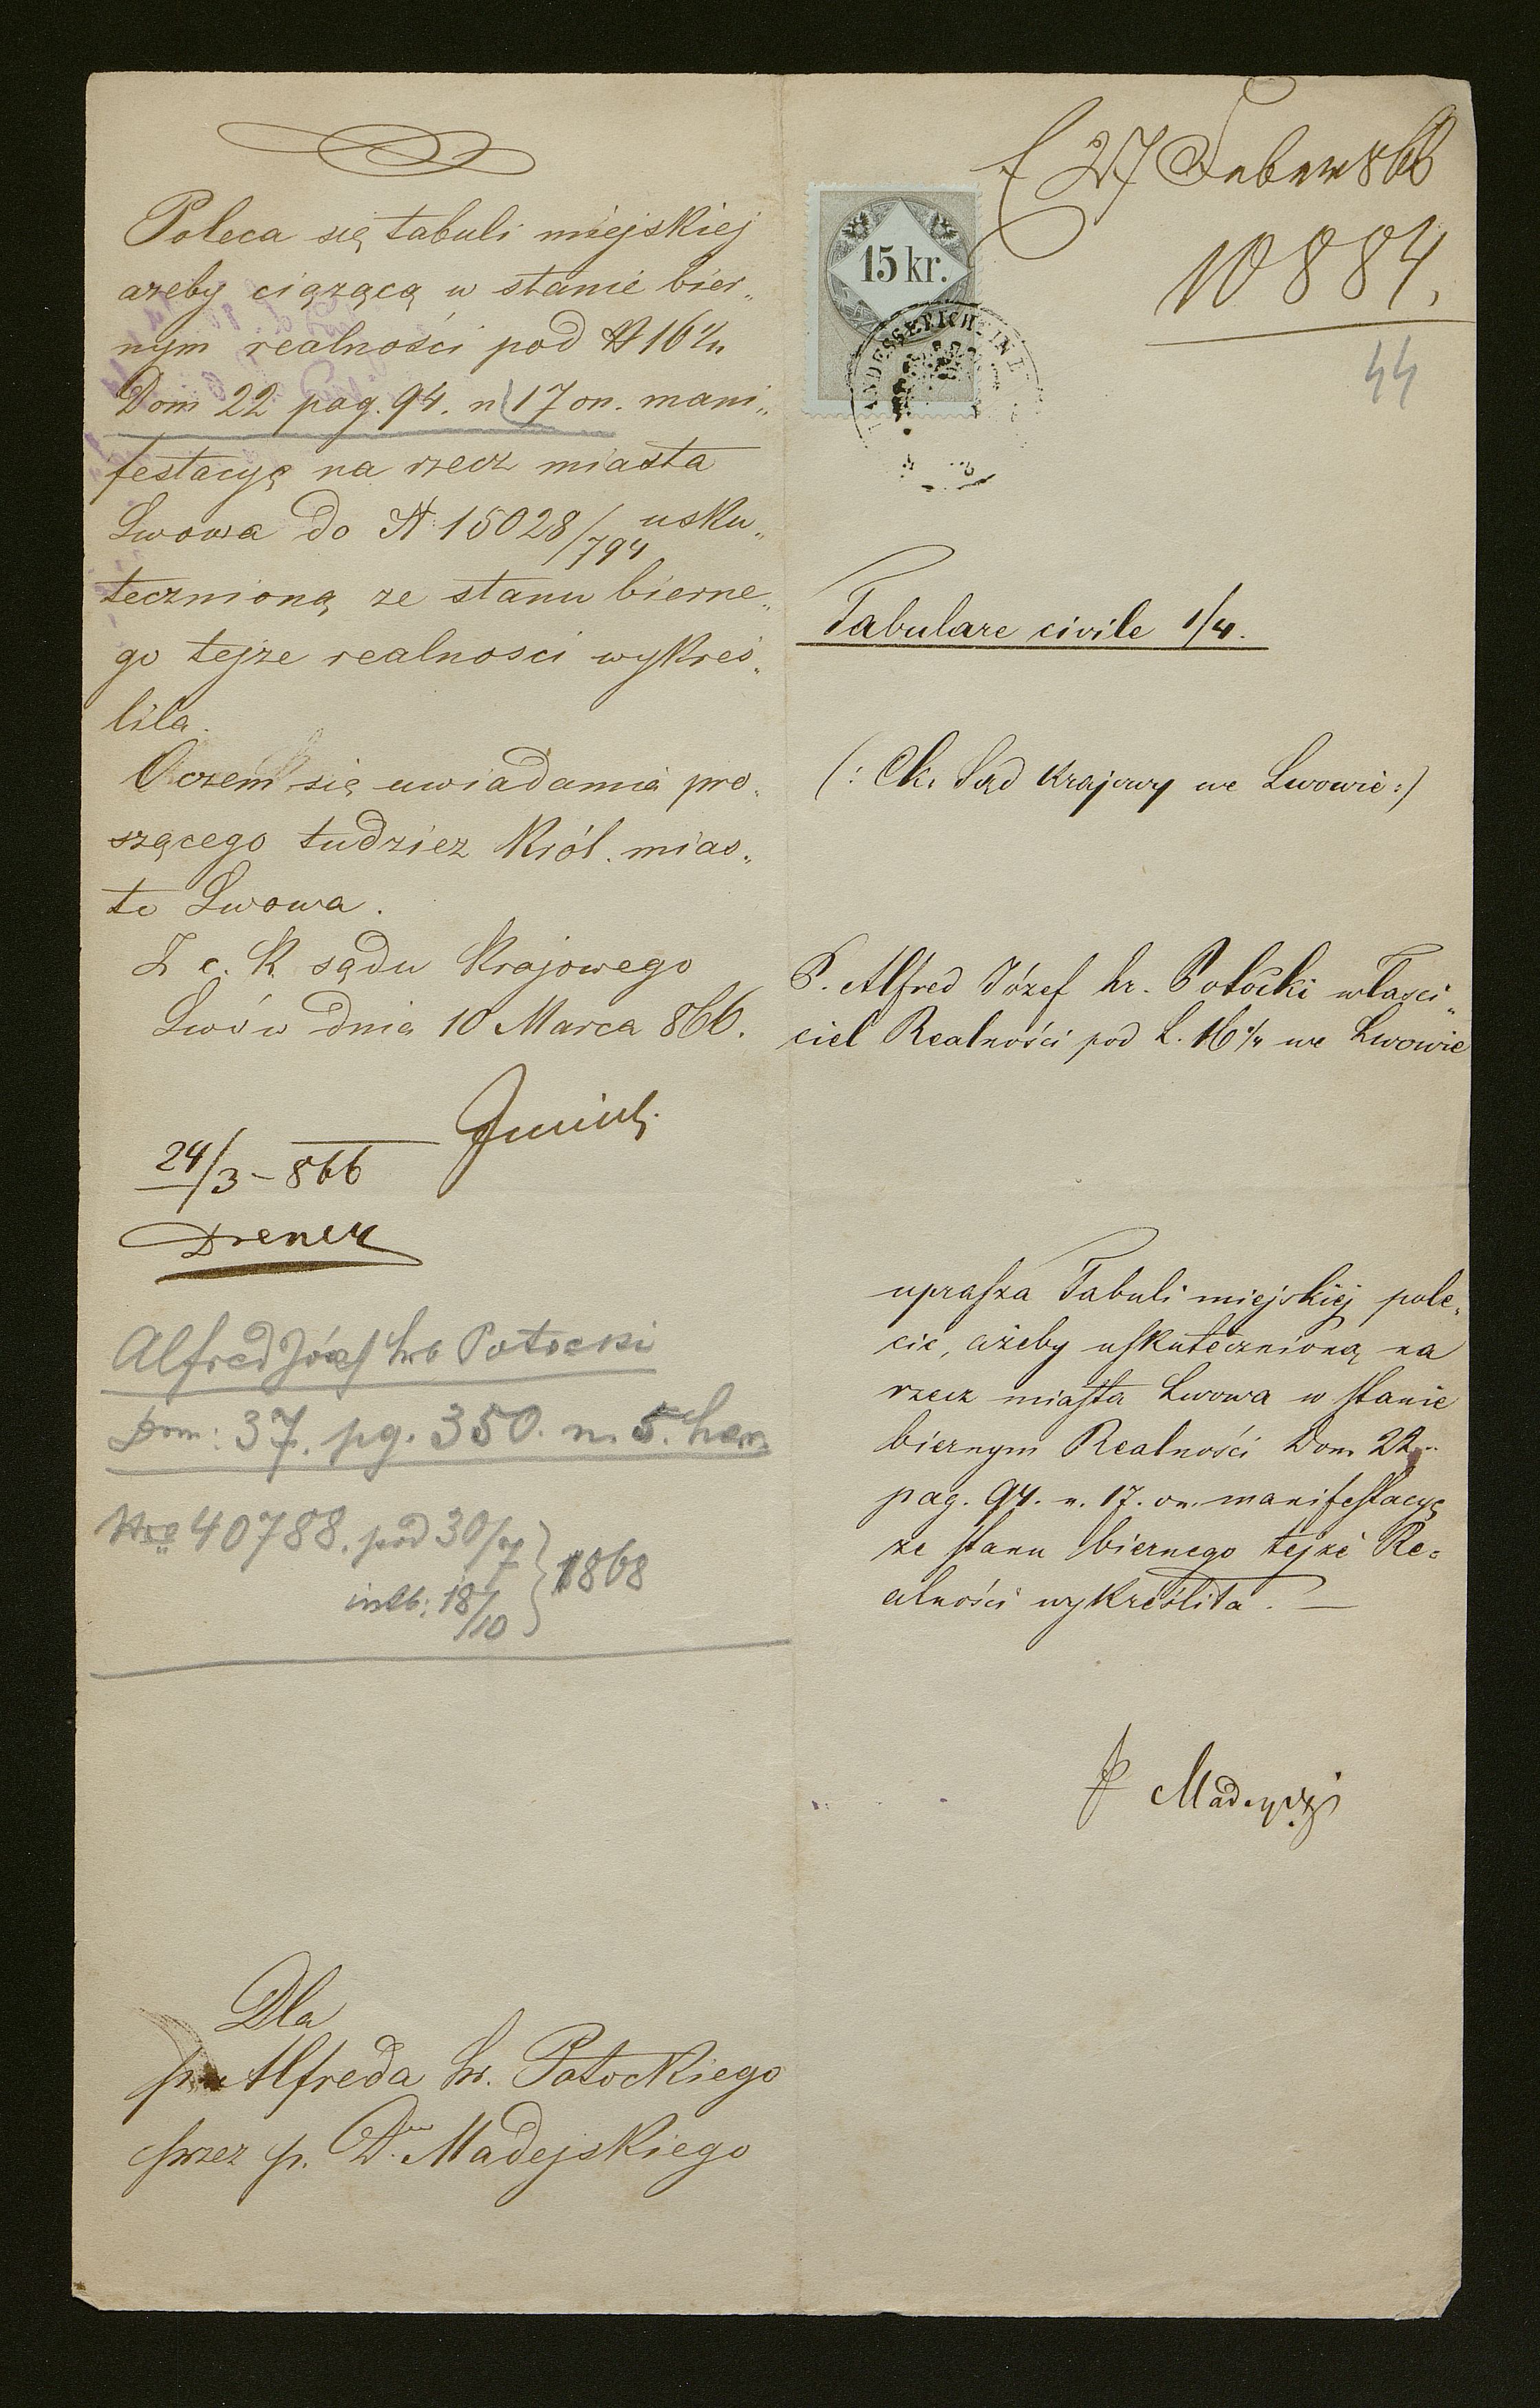 Poleca się tabuli miejskiej
ażeby ciążącą w stanie bier„
nym realności pod N 16 2/4
Dom 22 pag. 94. n 17 on. mani„
festacyę na rzecz miasta
Lwowa do N 15028/794 usku„
tecznioną ze stanu bierne„
go tejże realności wykreś„
liła.
O czem się uwiadamia pro„
szącego tudzież Król. mias„
to Lwowa.
Z c. k. sądu krajowego
Lwów dnia 10 Marca 866.
24/3 – 866
Alfred Józef hrb Potocki
Dom: 37. pg. 350. n. 5. haer.
40788. pod 30/7 } 1868
18/10
Dla
p. Alfreda hr. Potockiego
przez p. Dra Madejskiego
27 866
10884.
44
15 kr.
Tabulare civile 1/4.
(: Ck. Sąd Krajowy we Lwowie :)
P. Alfred Józef hr. Potocki właści„
ciel Realności pod L. 16 2/4 we Lwowie
uprasza Tabuli miejskiej pole„
cić, ażeby uskutecznioną na
rzecz miasta Lwowa w stanie
biernym Realności Dom 22
pag. 94. n. 17. on. manifestacyę
ze stanu biernego tejże Re„
alności wykreśliła. —
Madejski